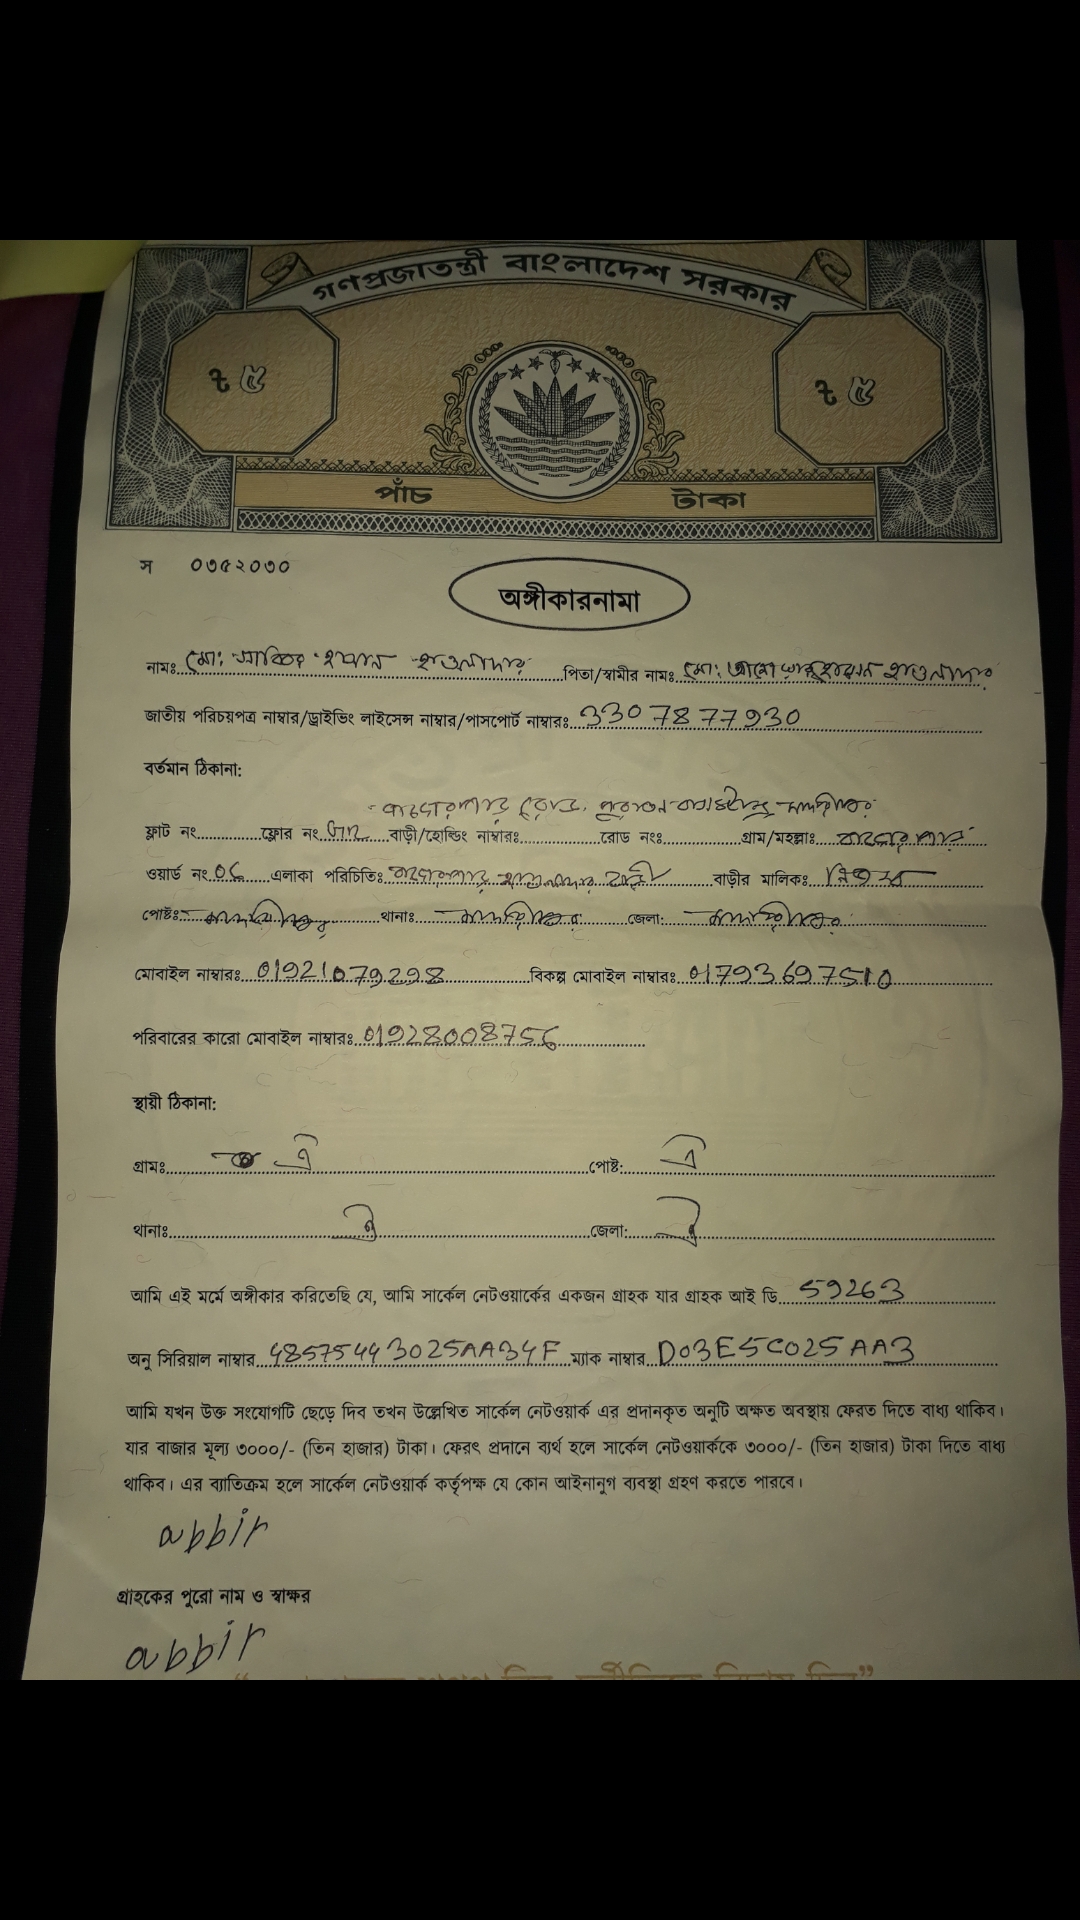 গণপ্রজাতন্ত্রী বাংলাদেশ সরকার
৳ ৫ ৳ ৫
পাঁচ টাকা
স ০৩৫২০৩০
অঙ্গীকারনামা
নামঃ মো: হাওলাদার পিতা/স্বামীর নামঃ মো: হাওলাদার
জাতীয় পরিচয়পত্র নাম্বার/ড্রাইভিং লাইসেন্স নাম্বার/পাসপোর্ট নাম্বারঃ 3307877930
বর্তমান ঠিকানা:
রোড, পুরাতন
ফ্লাট নং ফ্লোর নং বাড়ী/হোল্ডিং নাম্বারঃ রোড নংঃ গ্রাম/মহল্লাঃ
ওয়ার্ড নং 06 এলাকা পরিচিতিঃ হাওলাদার বাড়ী বাড়ীর মালিকঃ নিজস্ব
পোষ্টঃ থানাঃ জেলা:
মোবাইল নাম্বারঃ 01921079298 বিকল্প মোবাইল নাম্বারঃ 01793697510
পরিবারের কারো মোবাইল নাম্বারঃ 01928008756
স্থায়ী ঠিকানা:
গ্রামঃ ঐ পোষ্ট: ঐ
থানাঃ ঐ জেলা: ঐ
আমি এই মর্মে অঙ্গীকার করিতেছি যে, আমি সার্কেল নেটওয়ার্কের একজন গ্রাহক যার গ্রাহক আই ডি 59263
অনু সিরিয়াল নাম্বার 48575443025AA34F ম্যাক নাম্বার D03E5C025AA3
আমি যখন উক্ত সংযোগটি ছেড়ে দিব তখন উল্লেখিত সার্কেল নেটওয়ার্ক এর প্রদানকৃত অনুটি অক্ষত অবস্থায় ফেরত দিতে বাধ্য থাকিব।
যার বাজার মূল্য ৩০০০/- (তিন হাজার) টাকা। ফেরৎ প্রদানে ব্যর্থ হলে সার্কেল নেটওয়ার্ককে ৩০০০/- (তিন হাজার) টাকা দিতে বাধ্য
থাকিব। এর ব্যাতিক্রম হলে সার্কেল নেটওয়ার্ক কর্তৃপক্ষ যে কোন আইনানুগ ব্যবস্থা গ্রহণ করতে পারবে।
abbir
গ্রাহকের পুরো নাম ও স্বাক্ষর
abbir